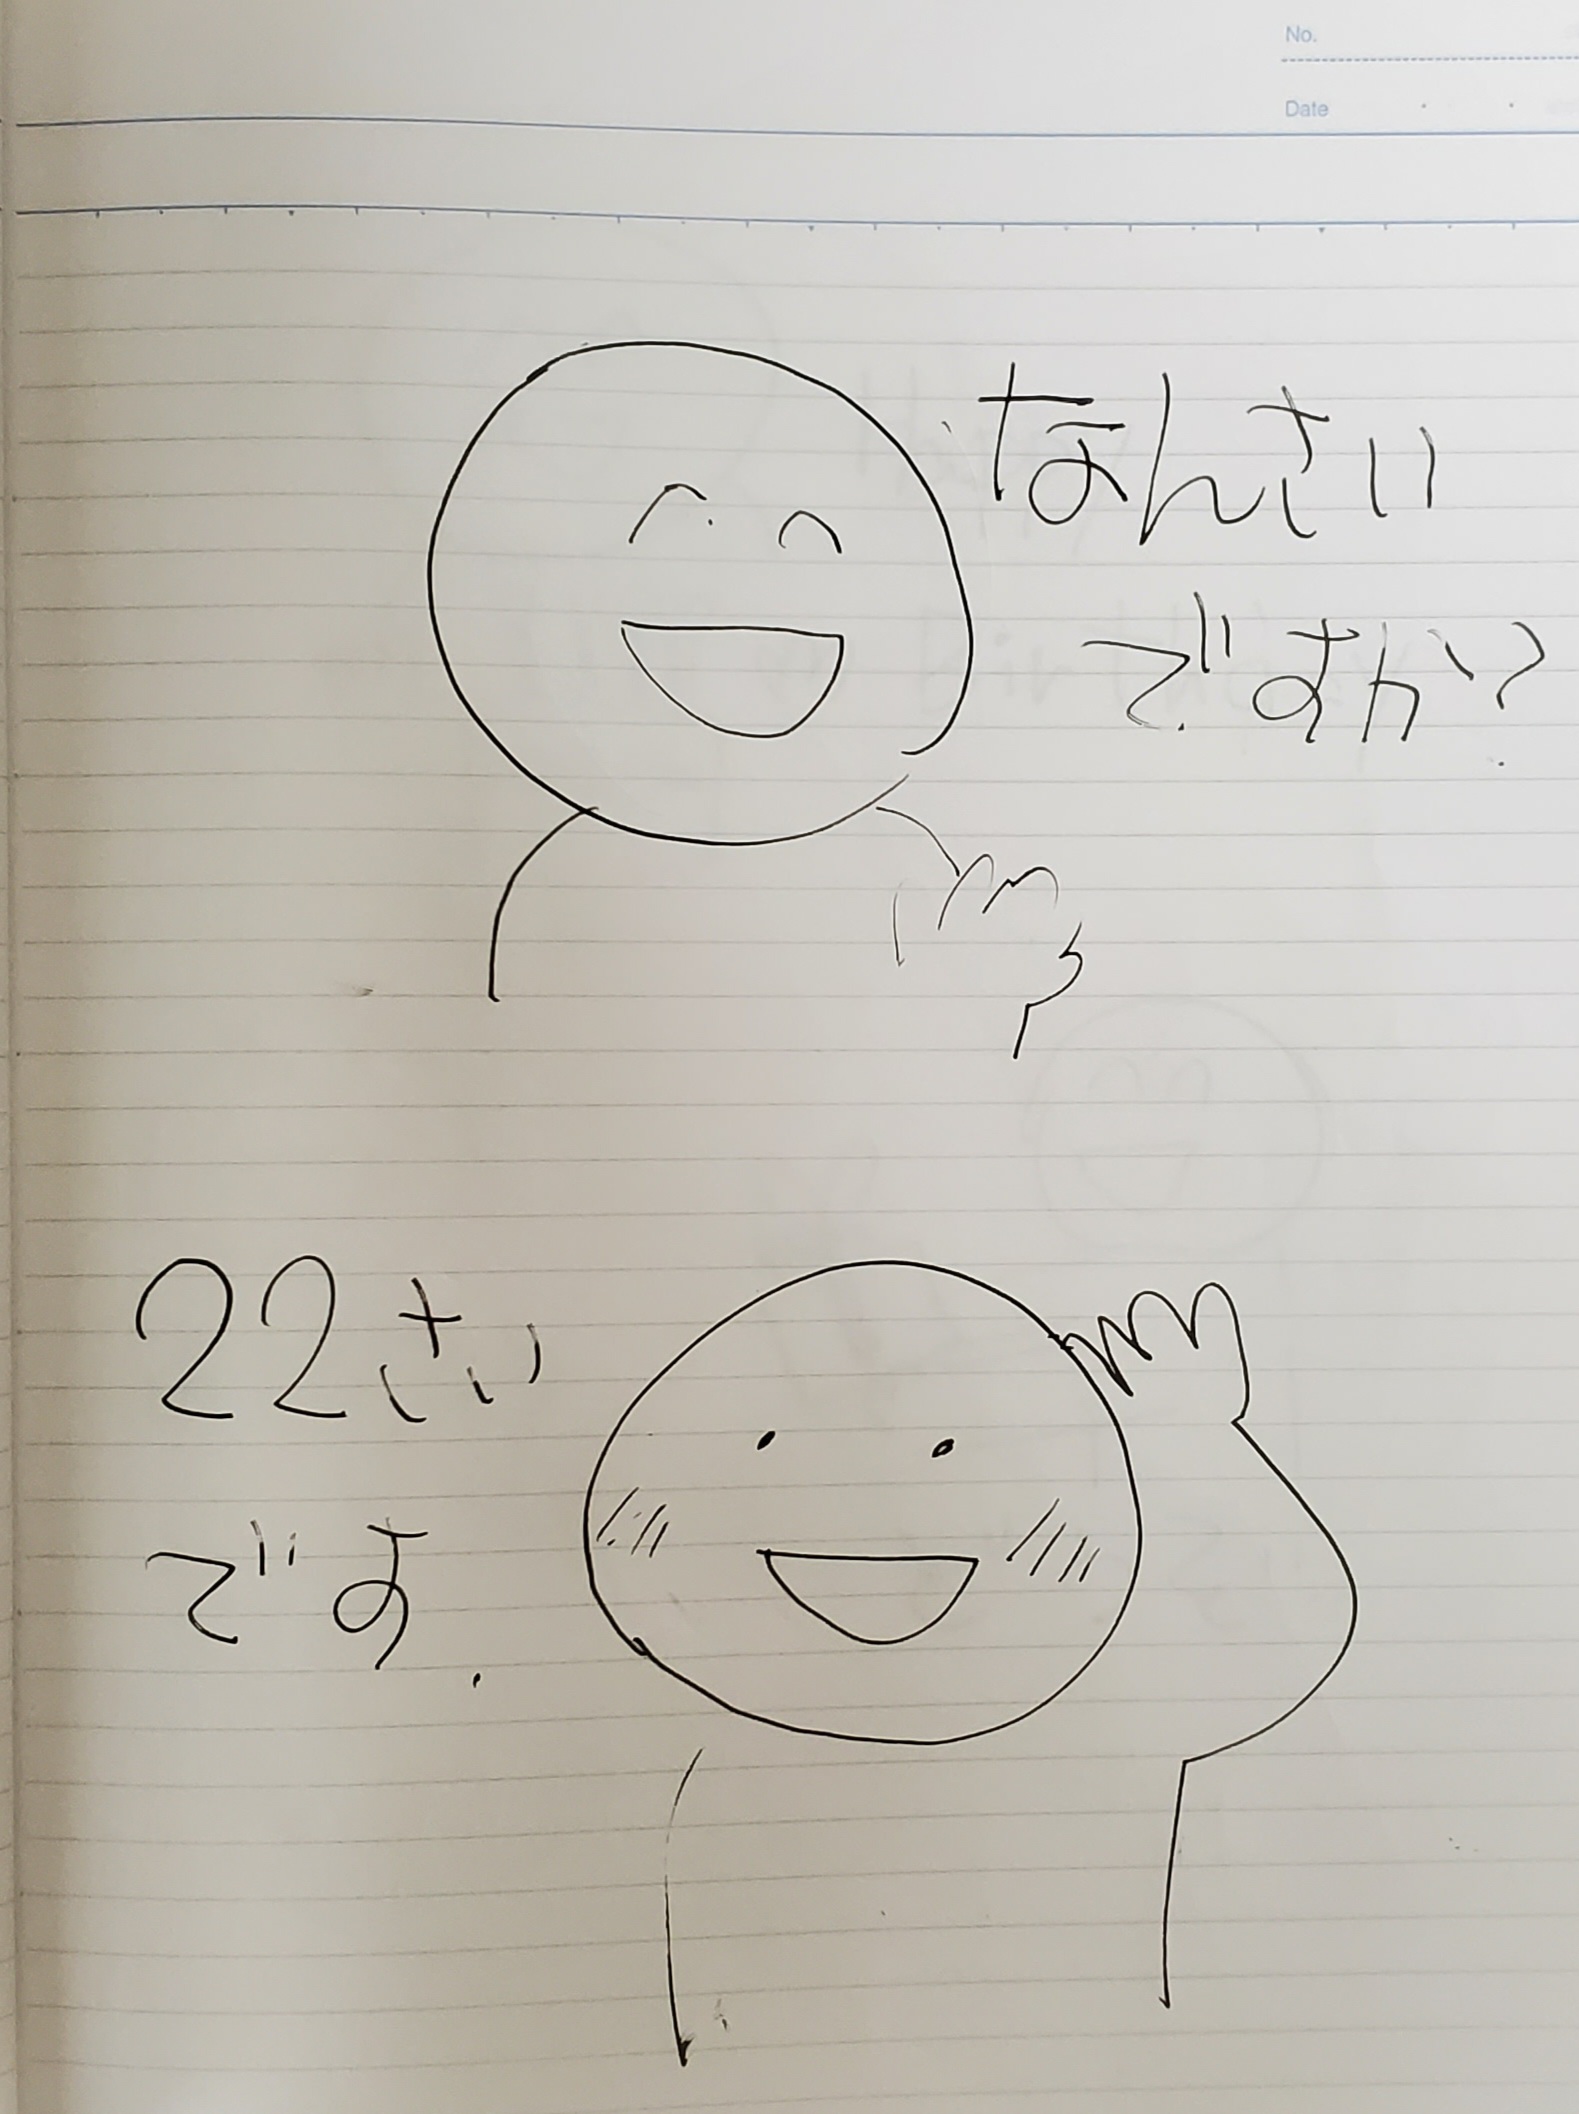 No.
Date
なんさい
ですか?
22さい
です.